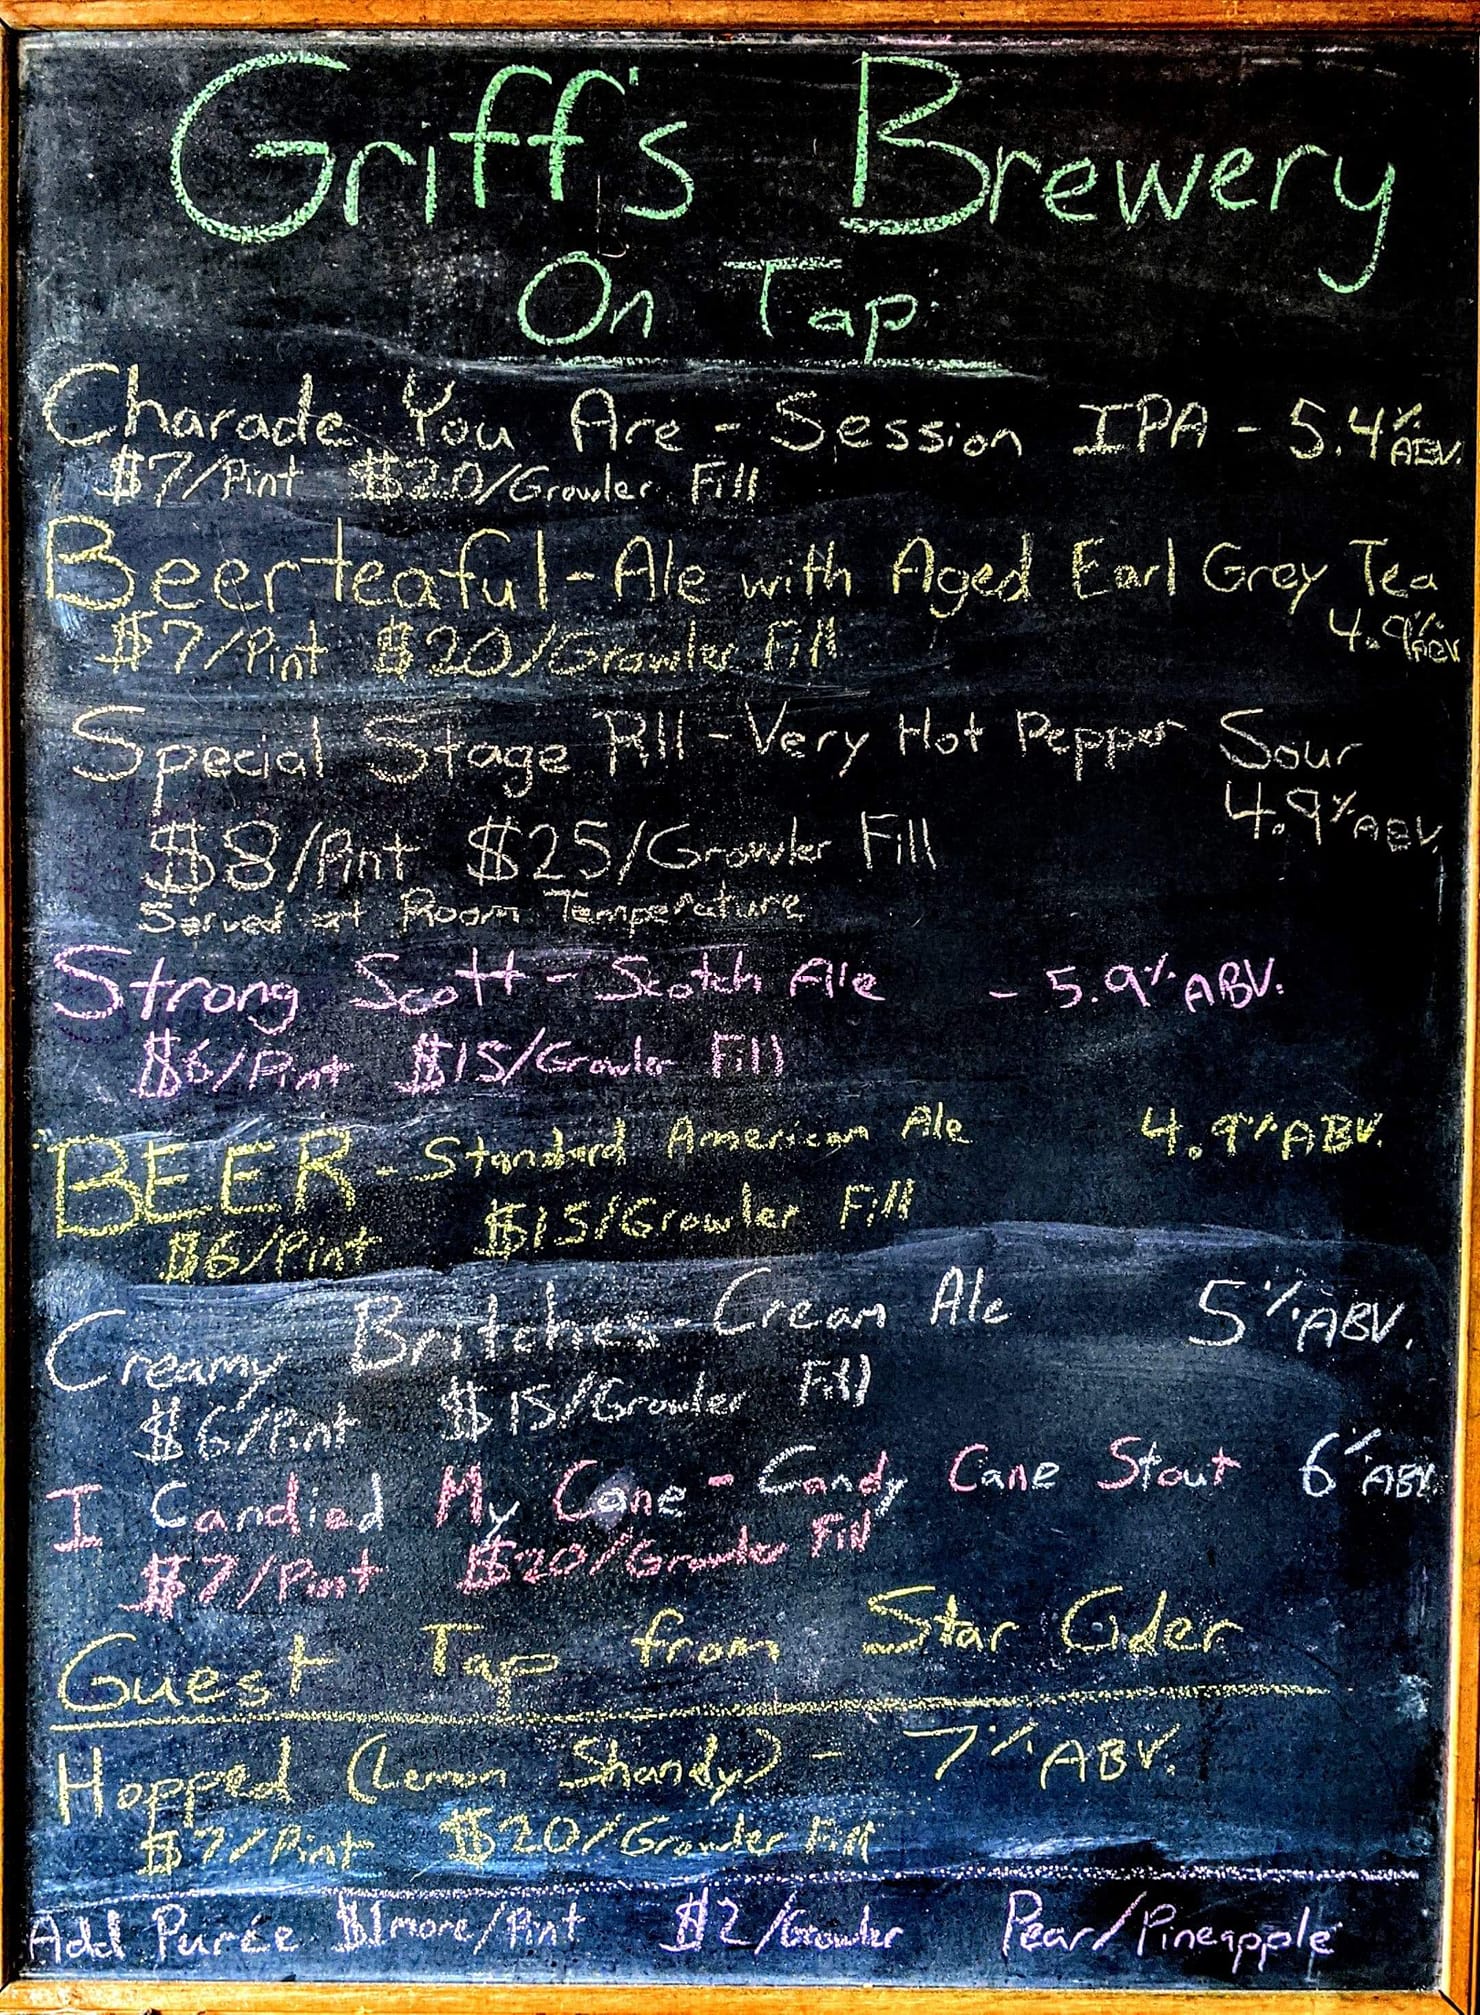 Griff's Brewery
On Tap
Charade You Are - Session IPA - 5.4% ABV.
$7/Pint $20/Growler Fill
Beerteaful - Ale with Aged Earl Grey Tea
4.9% ABV
$7/Pint $20/Growler Fill
Special Stage R11 - Very Hot Pepper Sour
4.9% ABV.
$8/Pint $25/Growler Fill
Served at Room Temperature
Strong Scott - Scotch Ale - 5.9% ABV.
$6/Pint $15/Growler Fill
BEER - Standard American Ale 4.9% ABV.
$6/Pint $15/Growler Fill
Creamy Britches - Cream Ale 5% ABV.
$6/Pint $15/Growler Fill
I Candied My Cane - Candy Cane Stout 6% ABV.
$7/Pint $20/Growler Fill
Guest Tap from Star Cider
Hopped (Lemon Shandy) - 7% ABV.
$7/Pint $20/Growler Fill
Add Purée $1more/Pint $2/Growler Pear/Pineapple